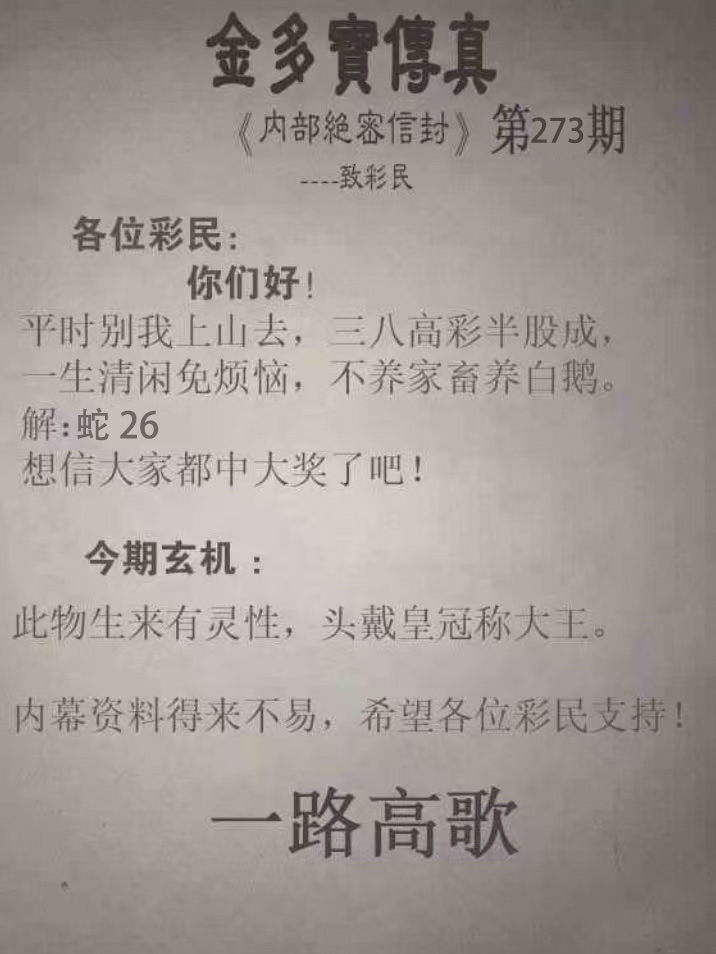 金多寶傳真
《内部絕密信封》第273期
----致彩民
各位彩民：
你们好！
平时别我上山去，三八高彩半股成，
一生清闲免烦恼，不养家畜养白鹅。
解:蛇 26
想信大家都中大奖了吧！
今期玄机：
此物生来有灵性，头戴皇冠称大王。
内幕资料得来不易，希望各位彩民支持！
一路高歌